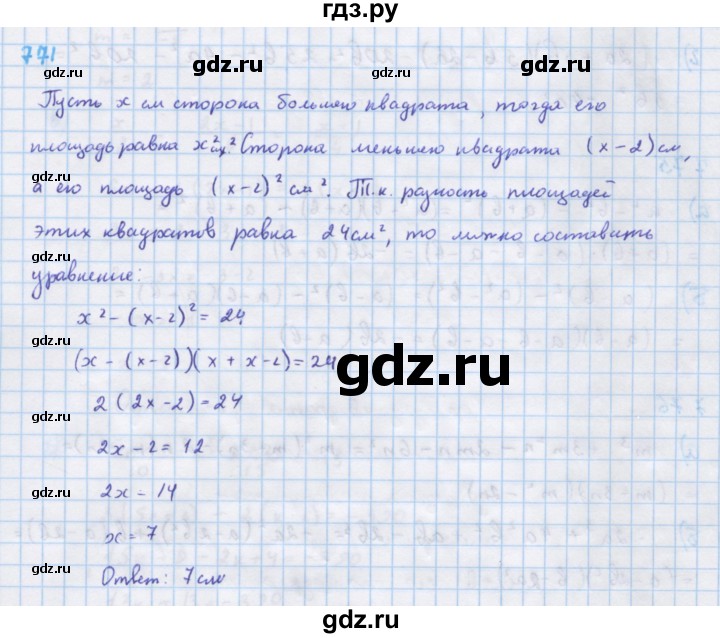 гдз.ру
771
gdz.ru gdz.ru gdz.ru
Пусть x см сторона большего квадрата, тогда его
площадь равна x² см². Сторона меньшего квадрата (x-2) см,
gdz.ru gdz.ru gdz.ru
а его площадь (x-2)² см². Т.к. разность площадей
этих квадратов равна 24 см², то можно составить
gdz.ru gdz.ru gdz.ru
уравнение:
x² - (x-2)² = 24
gdz.ru
(x - (x-2))(x + x-2) = 24
gdz.ru
2 (2x-2) = 24
gdz.ru
2x - 2 = 12
2x = 14
gdz.ru
x = 7
gdz.ru
Ответ: 7 см
gdz.ru